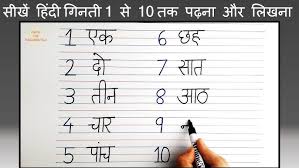 सीखें हिंदी गिनती 1 से 10 तक पढ़ना और लिखना
1 एक 6 छह
2 दो 7 सात
3 तीन 8 आठ
4 चार 9
5 पांच 10